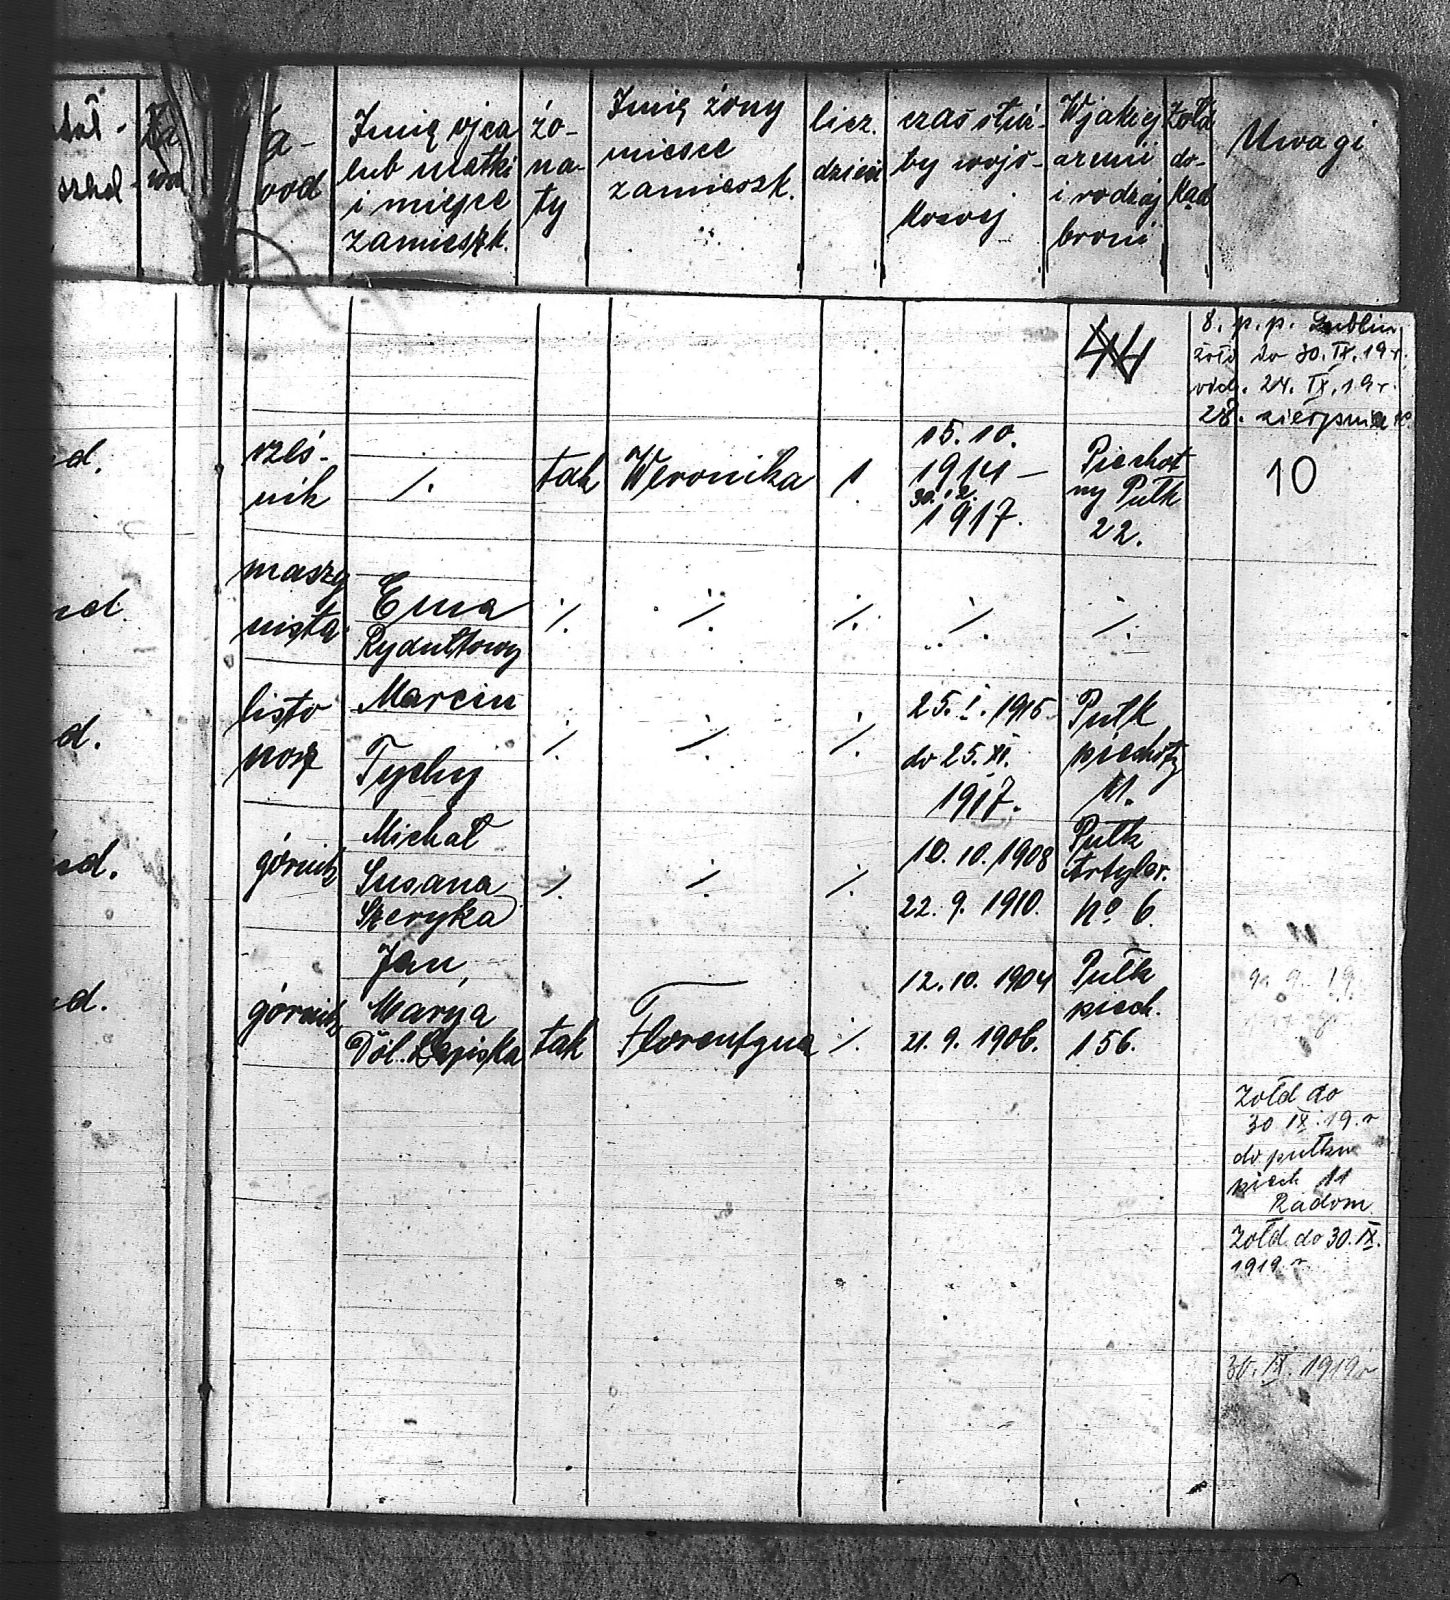 a-
wod
Imię ojca
lub matki
i miejsce
zamieszk.
żo-
na-
ty
Imię żony
miesce
zamieszk.
licz.
dzieci
czas służ-
by wojs-
kowej
W jakiej
armij
i rodzaj
broni
Żołd
do-
kąd
Uwagi
44
8. p.p. Lublin
żołd do 30.IX.19r.
24. IX.19r.
28. sierpnia
d.
rzeź-
nik
/.
tak
Weronika
1
15.10.
1914 –
30.12.
1917.
Piechot
ny Pułk
22.
10
d.
maszy
nista
Ema
Rydułtowy
/.
/.
/.
/.
/.
d.
listo
nosz
Marcin
Tychy
/.
/.
/.
25. I. 1916
do 25. XI.
1917.
Pułk
piechoty
11.
d.
górnik
Michał
Susana
Szeryka
/.
/.
/.
10.10.1908
22. 9. 1910.
Pułk
Artyler.
No 6.
d.
górnik
Jan,
Marija
Dol. Łapiska
tak
Florentyna
/.
12.10.1904
21. 9. 1906.
Pułk
piech.
156.
żołd do
30 IX.19.r
do pułku
piech 11
Radom
Żołd do 30.IX.
1919 r
30.IX.1919r